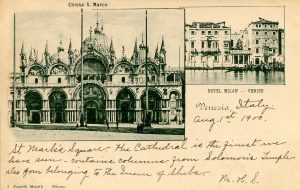 Chiesa S. Marco
HOTEL MILAN — VENISE
Venezia, Italy
Aug 1st 1900.
St Mark's Square. The Cathedral is the finest we
have seen - contains columns from Solomon's Temple
also four belonging to the Queen of Sheba.
M. H. S.
Fratelli Milano.